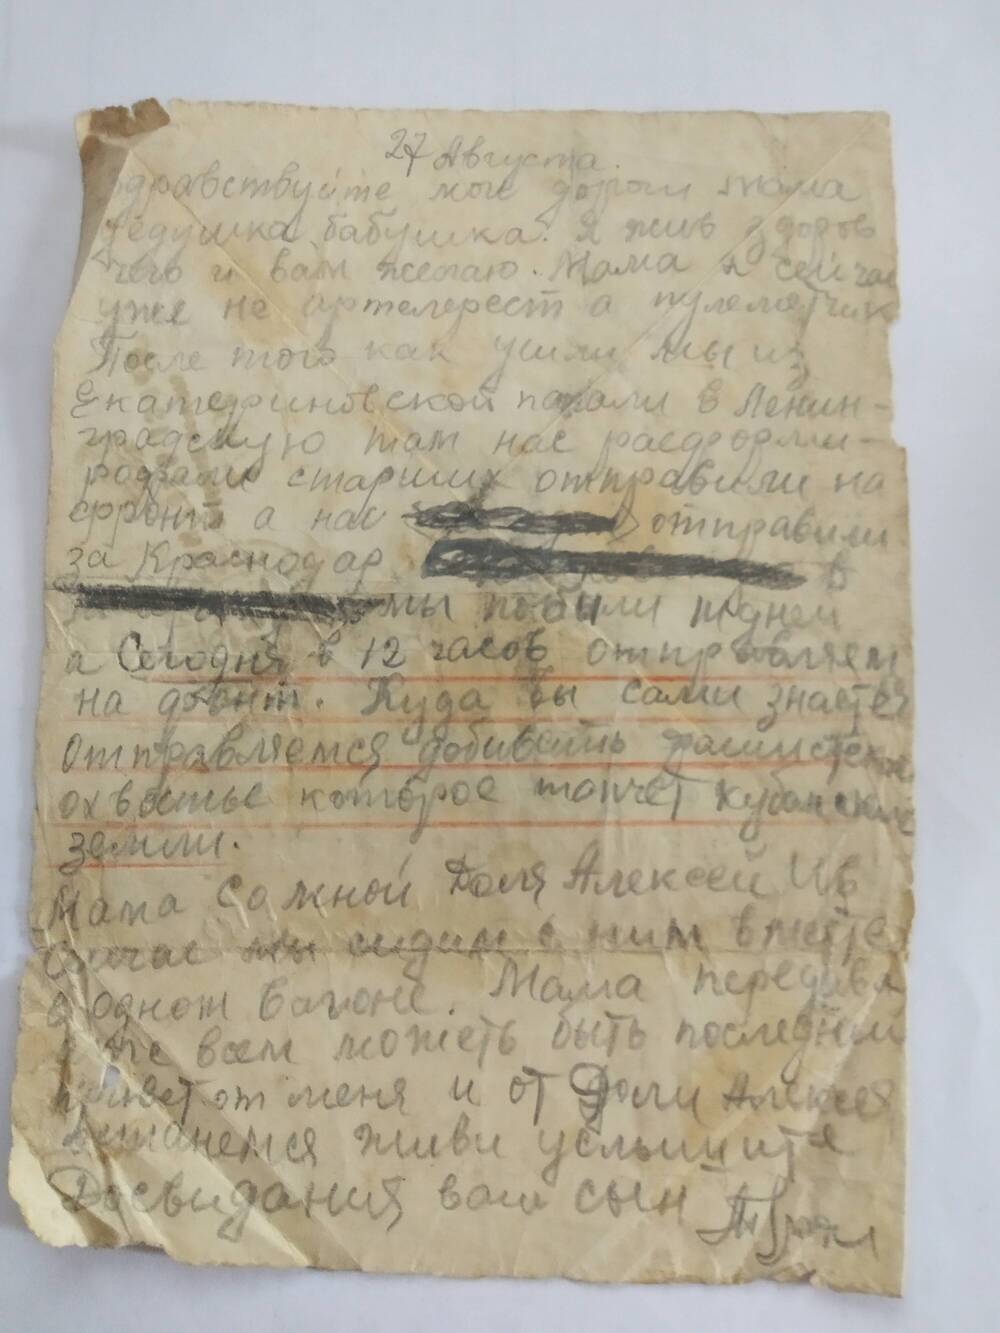 27 Августа.
здравствуйте мое дороги мама
дедушка бабушка. Я жив здоров
чего и вам желаю. Мама я сейчас
уже не артелерест а пулеметчик
После того как ушли мы из
Екатериновской попали в Ленин-
градскую там нас расформи-
ровали старших отправили на
фронт а нас отправили
за Краснодар в
мы побыли дней
а Сегодня в 12 часов отправляем
на фронт. Куда вы сами знаете
отправляемся добивать фашистское
охвостье которое топчет кубанскую
земли.
Мама Со мной Доля Алексей Ив
сичас мы сидим с ним вместе
в одном вагоне. Мама передавай
всем можеть быть последний
привет от меня и от Доли Алексея
встанемся живи услышите
Досвидания ваш сын